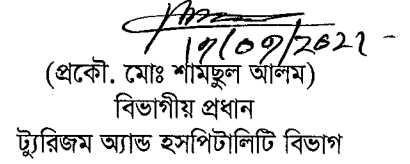 (প্রকৌ. মোঃ শামছুল আলম)
বিভাগীয় প্রধান
ট্যুরিজম অ্যান্ড হসপিটালিটি বিভাগ